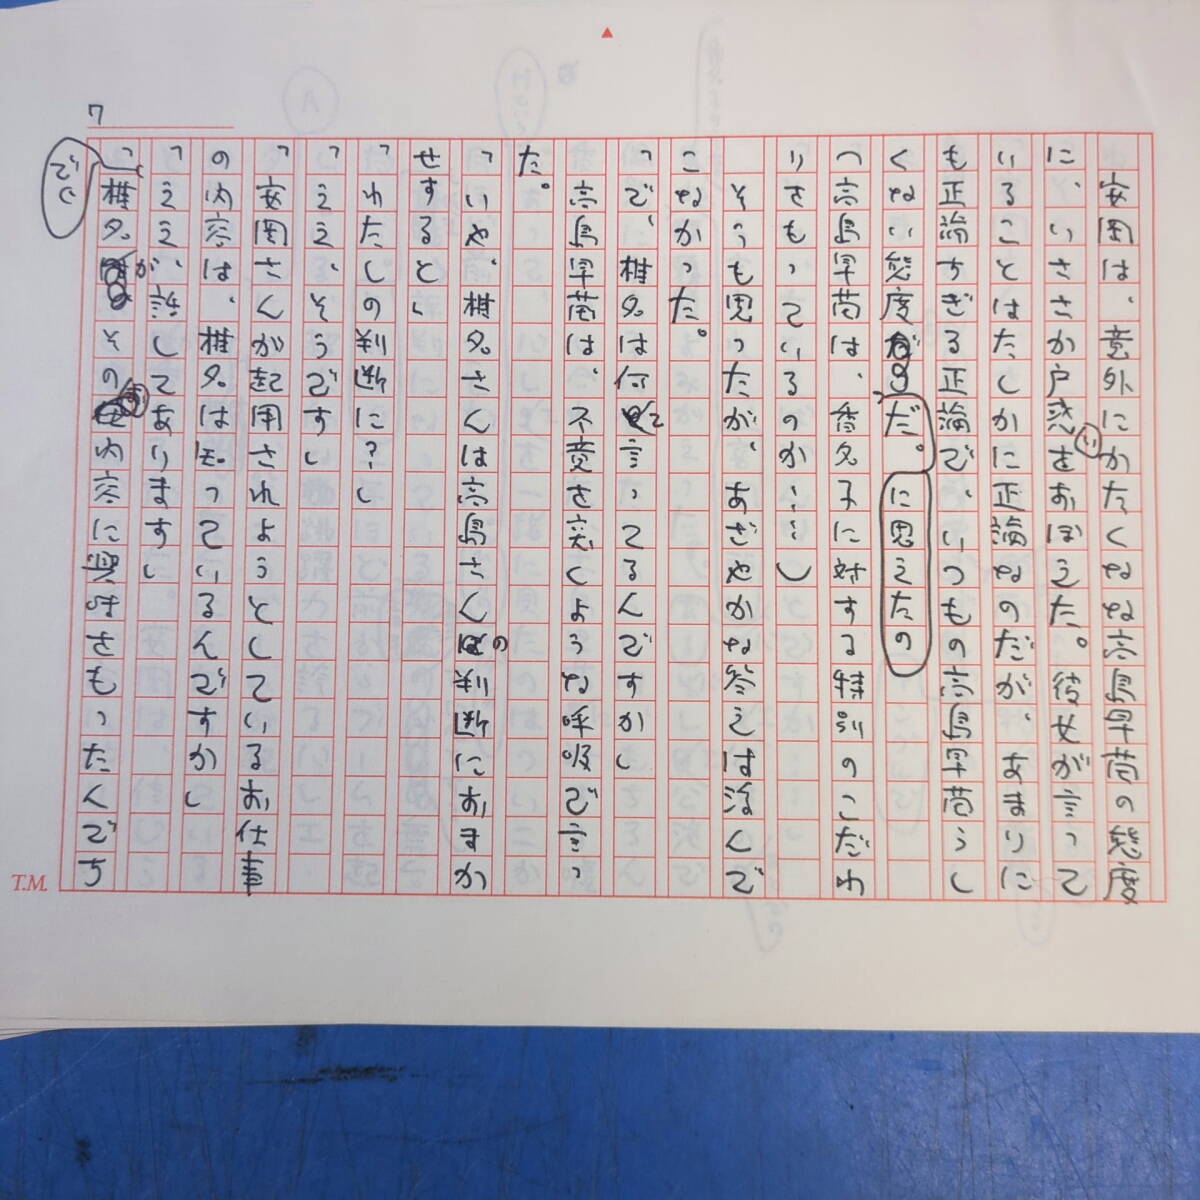 7
安岡は、意外にかたくなな高島早苗の態度
に、いささか戸惑いをおぼえた。彼女が言って
いることはたしかに正論なのだが、あまりに
も正論すぎる正論で、いつもの高島早苗らし
くない態度だ。に思えたの
「高島早苗は、香名子に対する特別のこだわ
りをもっているのか……」
そうも思ったが、あざやかな答えは浮んで
こなかった。
「で、椎名は何て言ってるんですか」
高島早苗は、不意を突くような呼吸で言っ
た。
「いや、椎名さんは高島さんの判断におまか
せすると」
「わたしの判断に?」
「ええ、そうです」
「安岡さんが起用されようとしているお仕事
の内容は、椎名は知っているんですか」
「ええ、話してあります」
「で、椎名がその内容に興味をもったんでち
T.M.